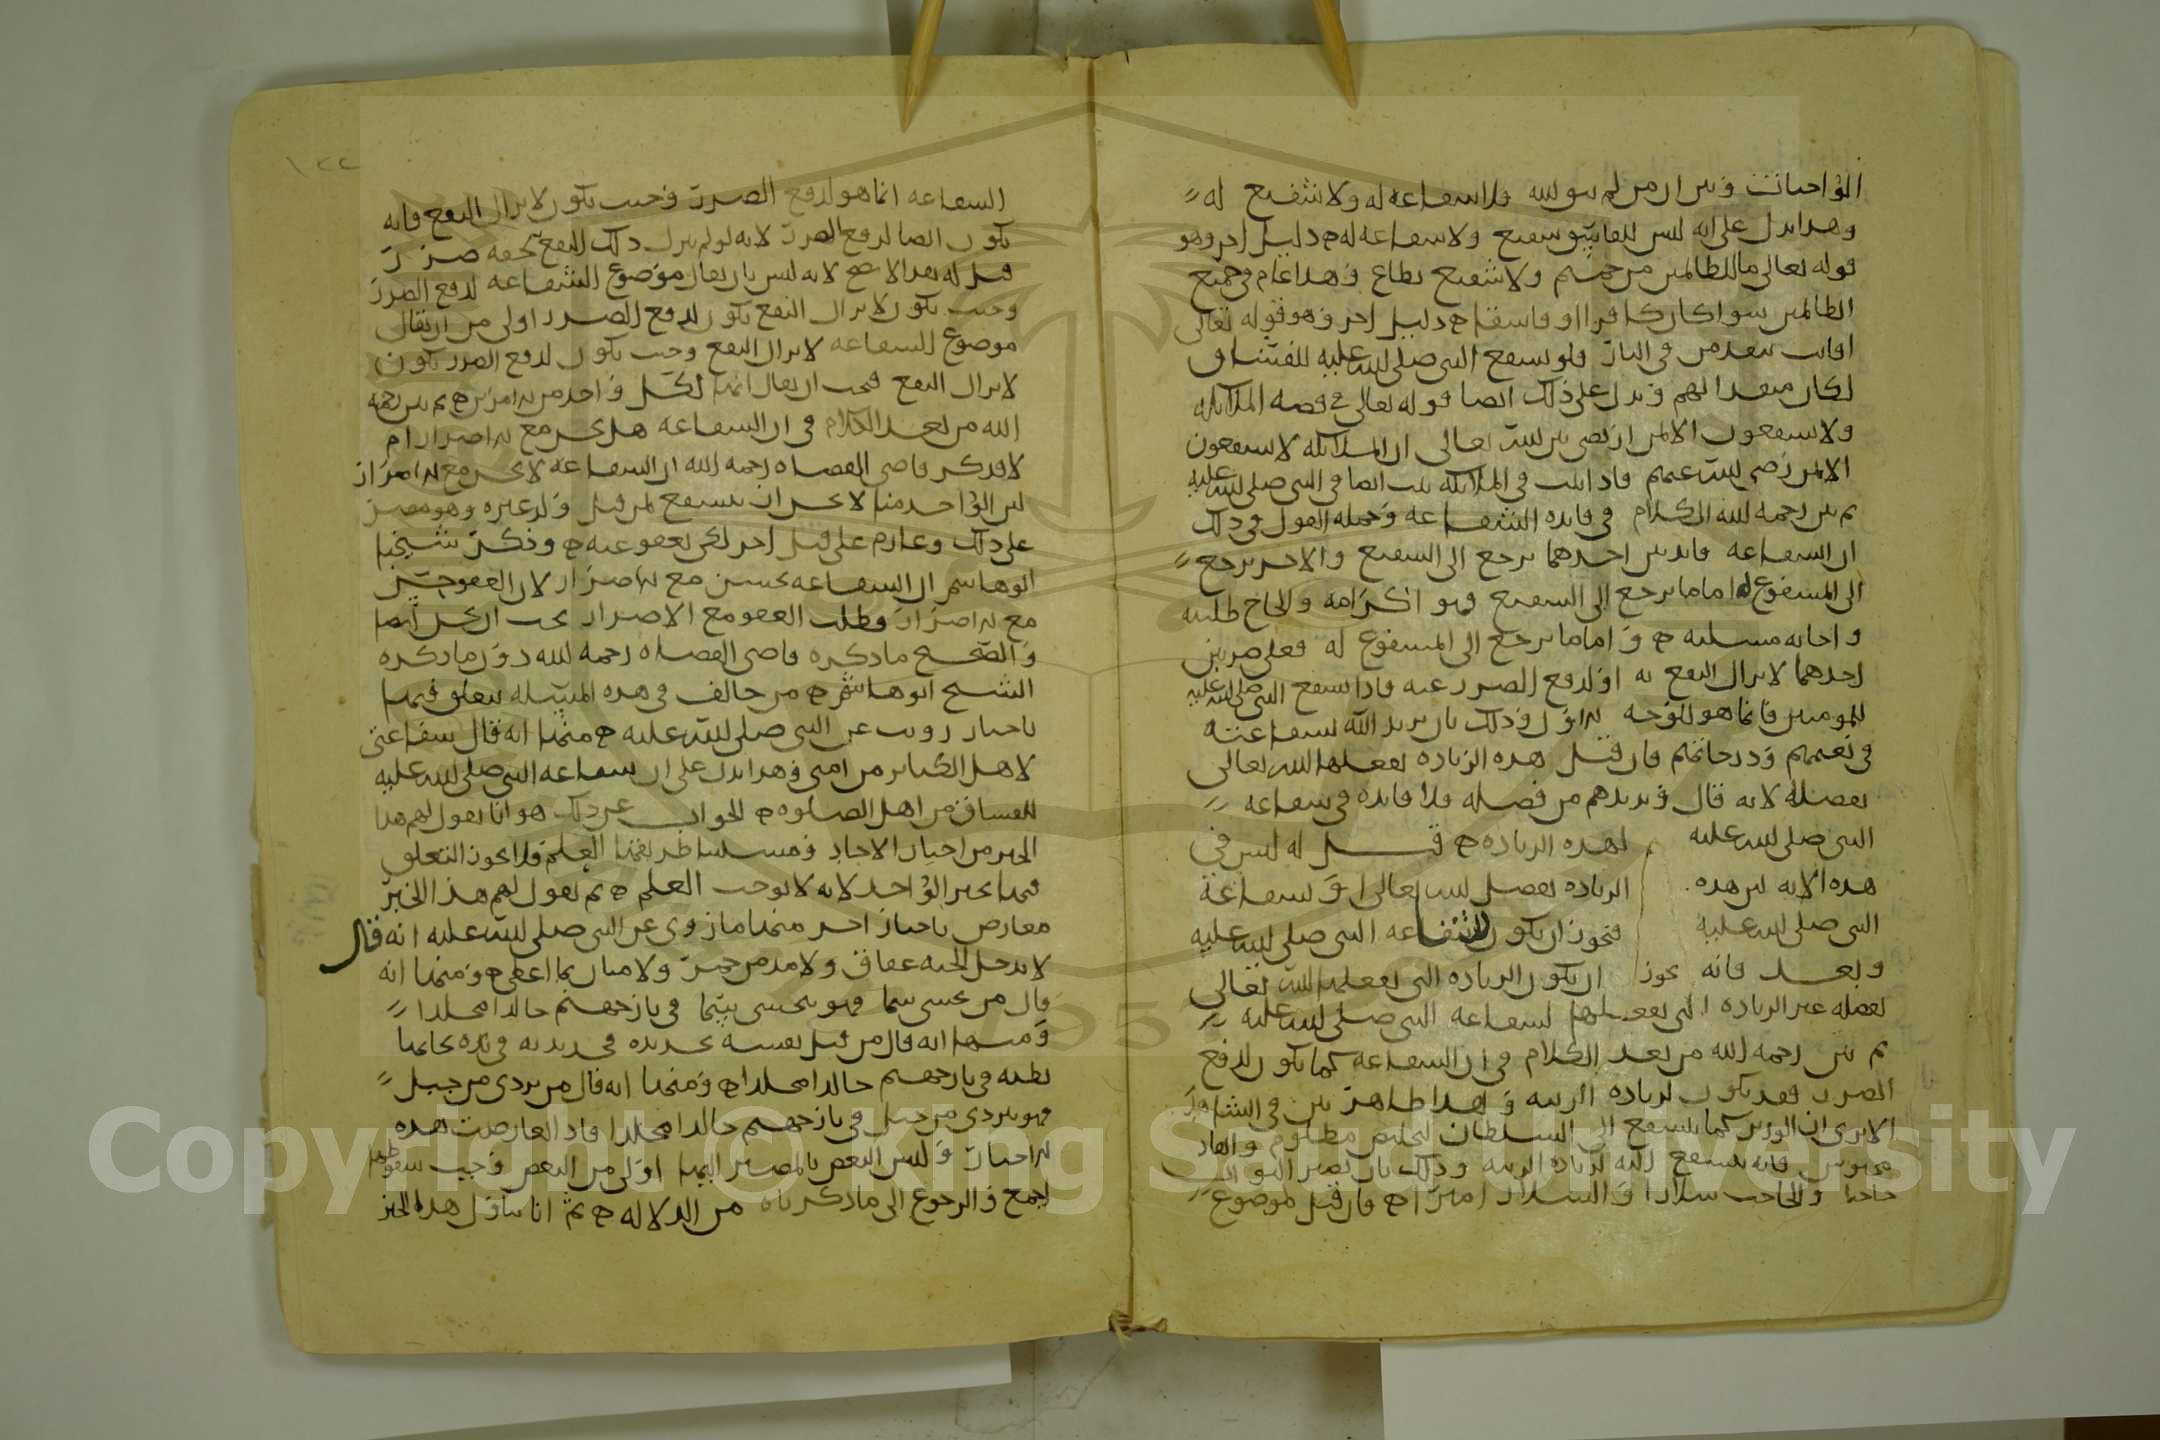 الواجبات وبين ان من لم يتب لله فلا شفاعة له ولا شفيع له
وهذا يدل على انه ليس للفاسق شفيع ولا شفاعة له دليل اخر وهو
قوله تعالى ما للظالمين من حميم ولا شفيع يطاع وهذا عام في جميع
الظالمين سوا كان كافرا او فاسقا دليل اخر وهو قوله تعالى
افانت تنقذ من في النار فلو شفع النبي صلى الله عليه للفساق
لكان منقذا لهم ويدل على ذلك ايضا قوله تعالى في قصة الملائكة
ولا يشفعون الا لمن ارتضى بين الله تعالى ان الملائكة لا يشفعون
الا لمن رضي الله عنهم فاذا ثبت في الملائكة ثبت ايضا في النبي صلى الله عليه
ثم بين رحمه الله الكلام في فائدة الشفاعة وجملة القول في ذلك
ان الشفاعة فائدتين احدهما يرجع الى الشفيع والاخر يرجع
الى المشفوع له اما ما يرجع الى الشفيع فهو اكرامه والحاح طلبته
واجابة مسئلته واما ما يرجع الى المشفوع له فعلى ضربين
احدهما لانزال النفع به او لدفع الضرر عنه فاذا شفع النبي صلى الله عليه
للمومنين فانما هو للوجه الاول وذلك بان يزيد الله بشفاعته
في نعيمهم ودرجاتهم فان قيل هذه الزيادة يفعلها الله تعالى
بفضله لانه قال ويزيدهم من فضله فلا فائدة في شفاعة
النبي صلى الله عليه لهذه الزيادة قيل له ليس في
هذه الاية ان هذه الزيادة بفضل الله تعالى او شفاعة
النبي صلى الله عليه فيجوز ان يكون لشفاعة النبي صلى الله عليه
وبعد فانه يجوز ان يكون الزيادة التي يفعلها الله تعالى
بفضله غير الزيادة التي يفعلها لشفاعة النبي صلى الله عليه
ثم بين رحمه الله من بعد الكلام في ان الشفاعة كما يكون لدفع
الضرر فقد يكون لزيادة الرتبة وهذا ظاهر بين في الشاهد
الا ترى ان الوزير كما يشفع الى السلطان لتخليص مظلوم
فانه يشفع اليه لزيادة الرتبة وذلك بان يصير البواب
حاجبا والحاجب سلارا والسلار اميرا فان قيل موضوع
١٢٢
الشفاعة انما هو لدفع الضرر وحيث يكون لانزال النفع فانه
يكون ايضا لدفع الضرر لانه لو لم ينزل ذلك النفع لحقه ضرر
قيل له هذا لا يصح لانه ليس بان يقال موضوع الشفاعة لدفع الضرر
وحيث يكون لانزال النفع يكون لدفع الضرر اولى من ان يقال
موضوع الشفاعة لانزال النفع وحيث يكون لدفع الضرر يكون
لانزال النفع فيجب ان يقال انها لكل واحد من الامرين ثم بين رحمه
الله من بعد الكلام في ان الشفاعة هل يحسن مع الاصرار ام
لا فذكر قاضي القضاة رحمه الله ان الشفاعة لا يحسن مع الاصرار
لان الواحد منا لا يحسن ان يشفع لمن قتل ولد غيره وهو مصر
على ذلك وعازم على قتل اخر لكي يعفو عنه وذكر شيخنا
ابو هاشم ان الشفاعة تحسن مع الاصرار لان العفو حسن
مع الاصرار وطلب العفو مع الاصرار يجب ان يحسن ايضا
والصحيح ما ذكره قاضي القضاة رحمه الله دون ما ذكره
الشيخ ابو هاشم من خالف في هذه المسئلة يتعلق فيها
باخبار رويت عن النبي صلى الله عليه منها انه قال شفاعتي
لاهل الكبائر من امتي وهذا يدل على ان شفاعة النبي صلى الله عليه
للفساق من اهل الصلوة الجواب عن ذلك هو انا نقول لهم هذا
الخبر من اخبار الاحاد ومسئلتنا طريقها العلم فلا يجوز التعلق
فيها بخبر الواحد لانه لا يوجب العلم ثم نقول لهم هذا الخبر
معارض باخبار اخر منها ما روي عن النبي صلى الله عليه انه قال
لا يدخل الجنة عاق ولا مدمن خمر ولا منان بما اعطى ومنها انه
قال من تحسى سما فهو يتحسى سما في نار جهنم خالدا مخلدا
ومنها انه قال من قتل نفسه بحديدة فحديدته في يده يجا بها
بطنه في نار جهنم خالدا مخلدا ومنها انه قال من تردى من جبل
فهو يتردى من جبل في نار جهنم خالدا مخلدا فاذا تعارضت هذه
الاخبار وليس البعض بالمصير اليها اولى من البعض وجب سقوطها
اجمع والرجوع الى ما ذكرناه من الدلالة ثم انا نتاول هذا الخبر
Copyright © King Saud University